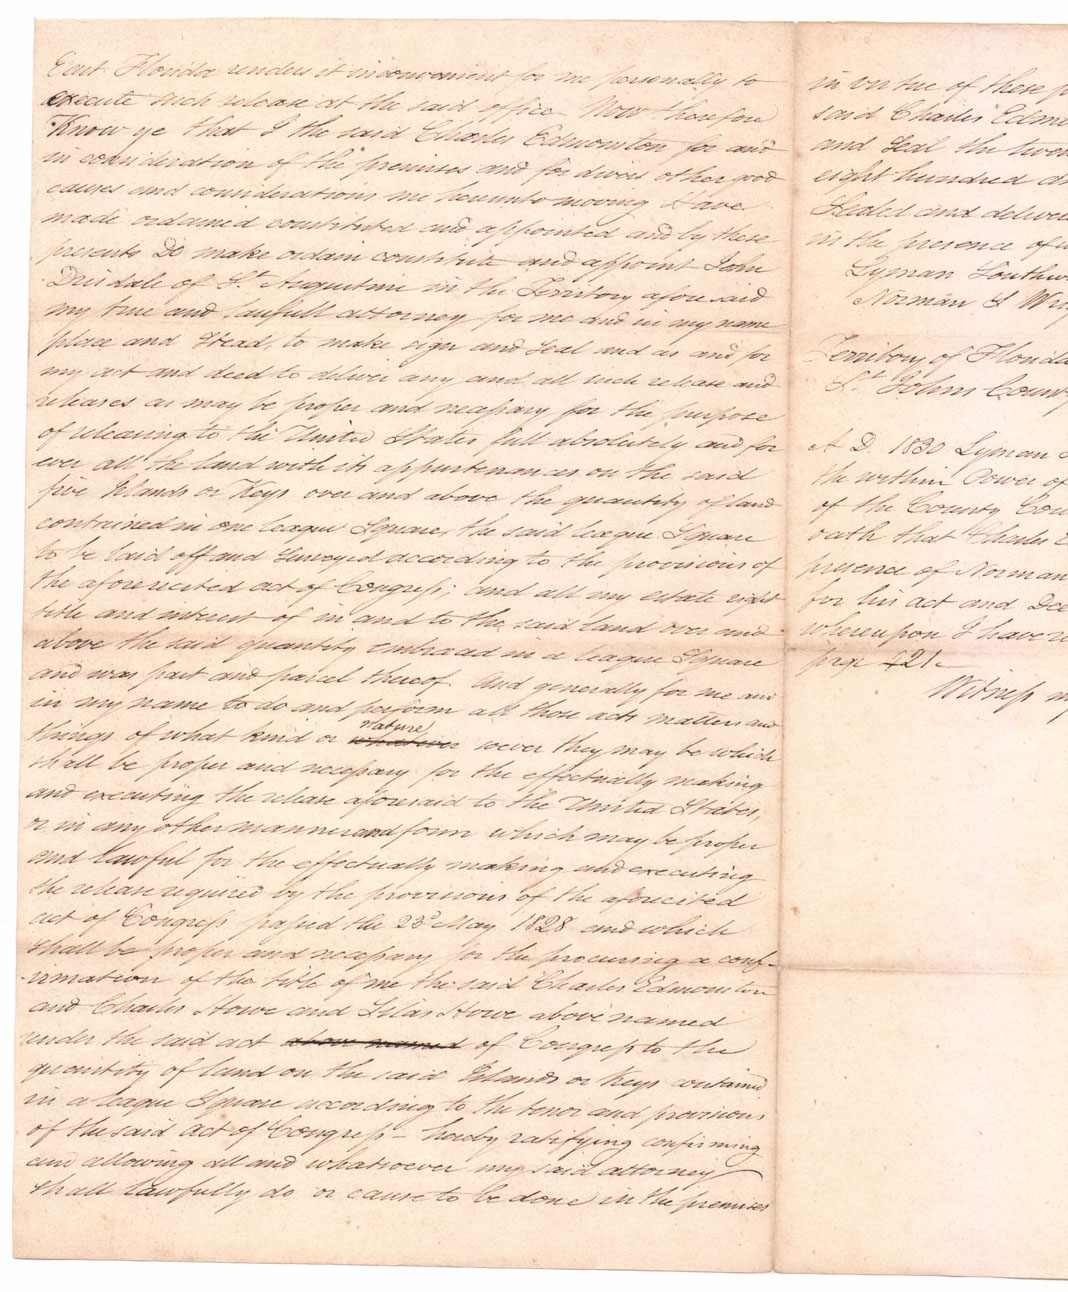 East Florida renders it inconvenient for me personally to
execute such release at the said office. Now therefore
Know ye that I the said Charles Edmonston for and
in consideration of the premises and for divers other good
causes and considerations me hereunto moving Have
made ordained constituted and appointed and by these
presents Do make ordain constitute and appoint John
Drisdale of St. Augustine in the Territory afore said
my true and lawfull attorney for me and in my name
place and Stead, to make sign and Seal and as and for
my act and deed to deliver any and all such release and
releases as may be proper and necessary for the purpose
of releasing to the United States, full absolutely and for
ever all the land with its appurtenances on the said
five Islands or Keys over and above the quantity of land
contained in one league Square, the said league Square
to be laid off and Surveyed according to the provisions of
the aforerecited act of Congress; and all my estate right
title and interest of in and to the said land over and
above the said quantity embraced in a league Square
and was part and parcel thereof. And generally for me and
in my name to do and perform all those acts matters and
things of what kind or whatever nature soever they may be which
shall be proper and necessary for the effectually making
and executing the release aforesaid to the United States,
or in any other manner and form which may be proper
and lawful for the effectually making and executing
the release required by the provisions of the aforecited
act of Congress passed the 23d May 1828 and which
shall be proper and necessary for the procuring a conf-
irmation of the title of me the said Charles Edmonston
and Charles Howe and Silas Howe above named
under the said act above named of Congress to the
quantity of land on the said Islands or Keys contained
in a league Square according to the tenor and provisions
of the said act of Congress – hereby ratifying confirming
and allowing all and whatsoever my said attorney
shall lawfully do or cause to be done in the premises
in virtue of these p
said Charles Edmo
and Seal the twen
eight hundred an
Sealed and delivere
in the presence of u
Lyman Southw
Norman S Wri
Territory of Florida
St. Johns County
A D. 1830 Lyman S
the within Power of
of the County Cou
oath that Charles E
presence of Norman
for his act and Dee
whereupon I have re
page 421.
Witness my